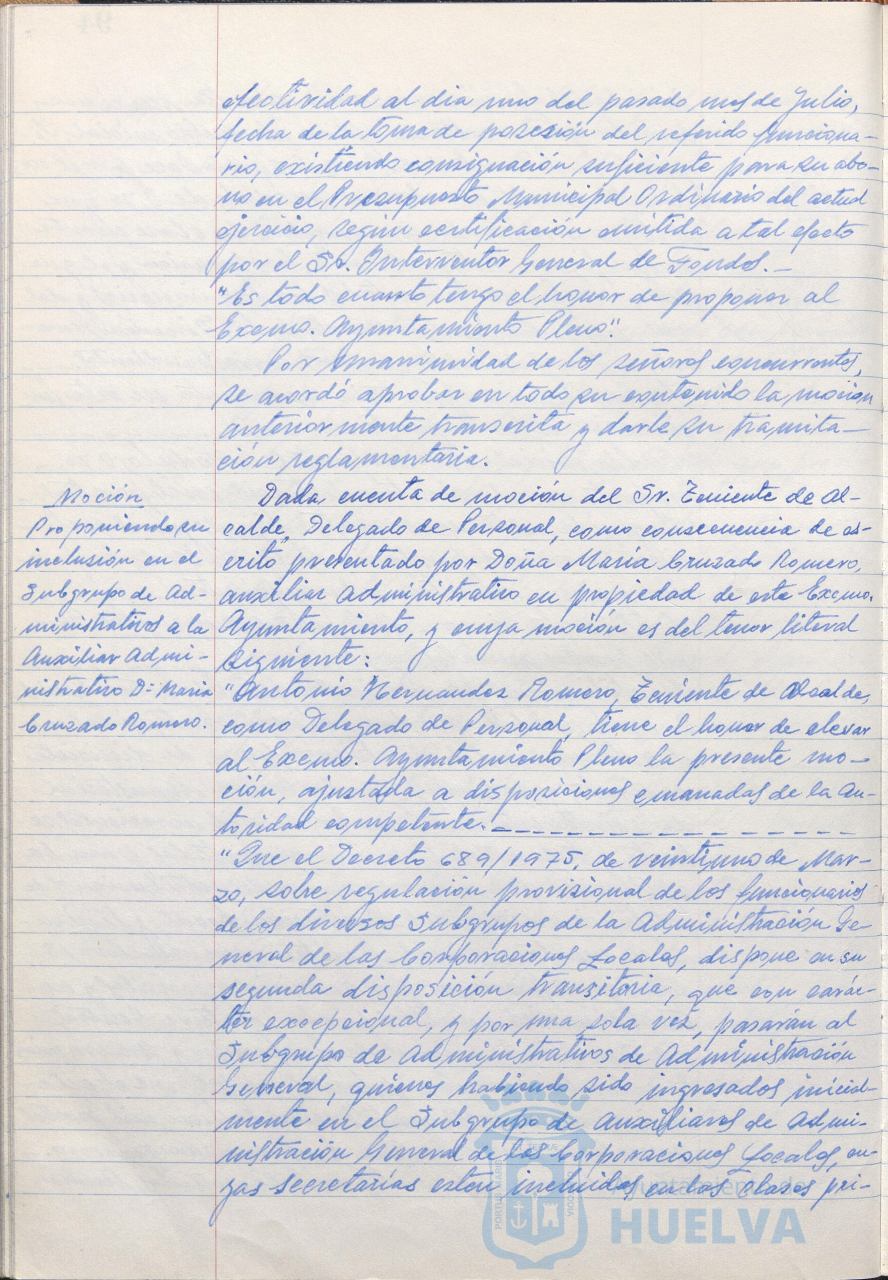 efectividad al dia uno del pasado mes de Julio,
fecha de la toma de posesión del referido funciona-
rio, existiendo consignación suficiente para su abo-
no en el Presupuesto Municipal Ordinario del actual
ejercicio, según certificación emitida a tal efecto
por el Sr. Interventor General de Fondos.-
"Es todo cuanto tengo el honor de proponer al
Excmo. Ayuntamiento Pleno".
Por unanimidad de los señores concurrentes,
se acordó aprobar en todo su contenido la moción
anteriormente transcrita y darle su tramita-
ción reglamentaria.
Moción
Proponiendo su
inclusión en el
Subgrupo de Ad-
ministrativos a la
Auxiliar Admi-
nistrativo Dª María
Cruzado Romero.
Dada cuenta de moción del Sr. Teniente de Al-
calde, Delegado de Personal, como consecuencia de es-
crito presentado por Doña María Cruzado Romero,
auxiliar administrativo en propiedad de este Excmo.
Ayuntamiento, y cuya moción es del tenor literal
siguiente:
"Antonio Hernandez Romero, Teniente de Alcalde,
como Delegado de Personal, tiene el honor de elevar
al Excmo. Ayuntamiento Pleno la presente mo-
ción, ajustada a disposiciones emanadas de la au-
toridad competente.-
"Que el Decreto 689/1975, de veintiuno de Mar-
zo, sobre regulación provisional de los funcionarios
de los diversos Subgrupos de la Administración Ge-
neral de las Corporaciones Locales, dispone en su
segunda disposición transitoria, que con carác-
ter excepcional, y por una sola vez, pasarán al
Subgrupo de Administrativos de Administración
General, quienes habiendo sido ingresados inicial-
mente en el Subgrupo de Auxiliares de Admi-
nistración General de las Corporaciones Locales, cu-
yas secretarías estén incluidas en las clases pri-
Ayuntamiento de
HUELVA